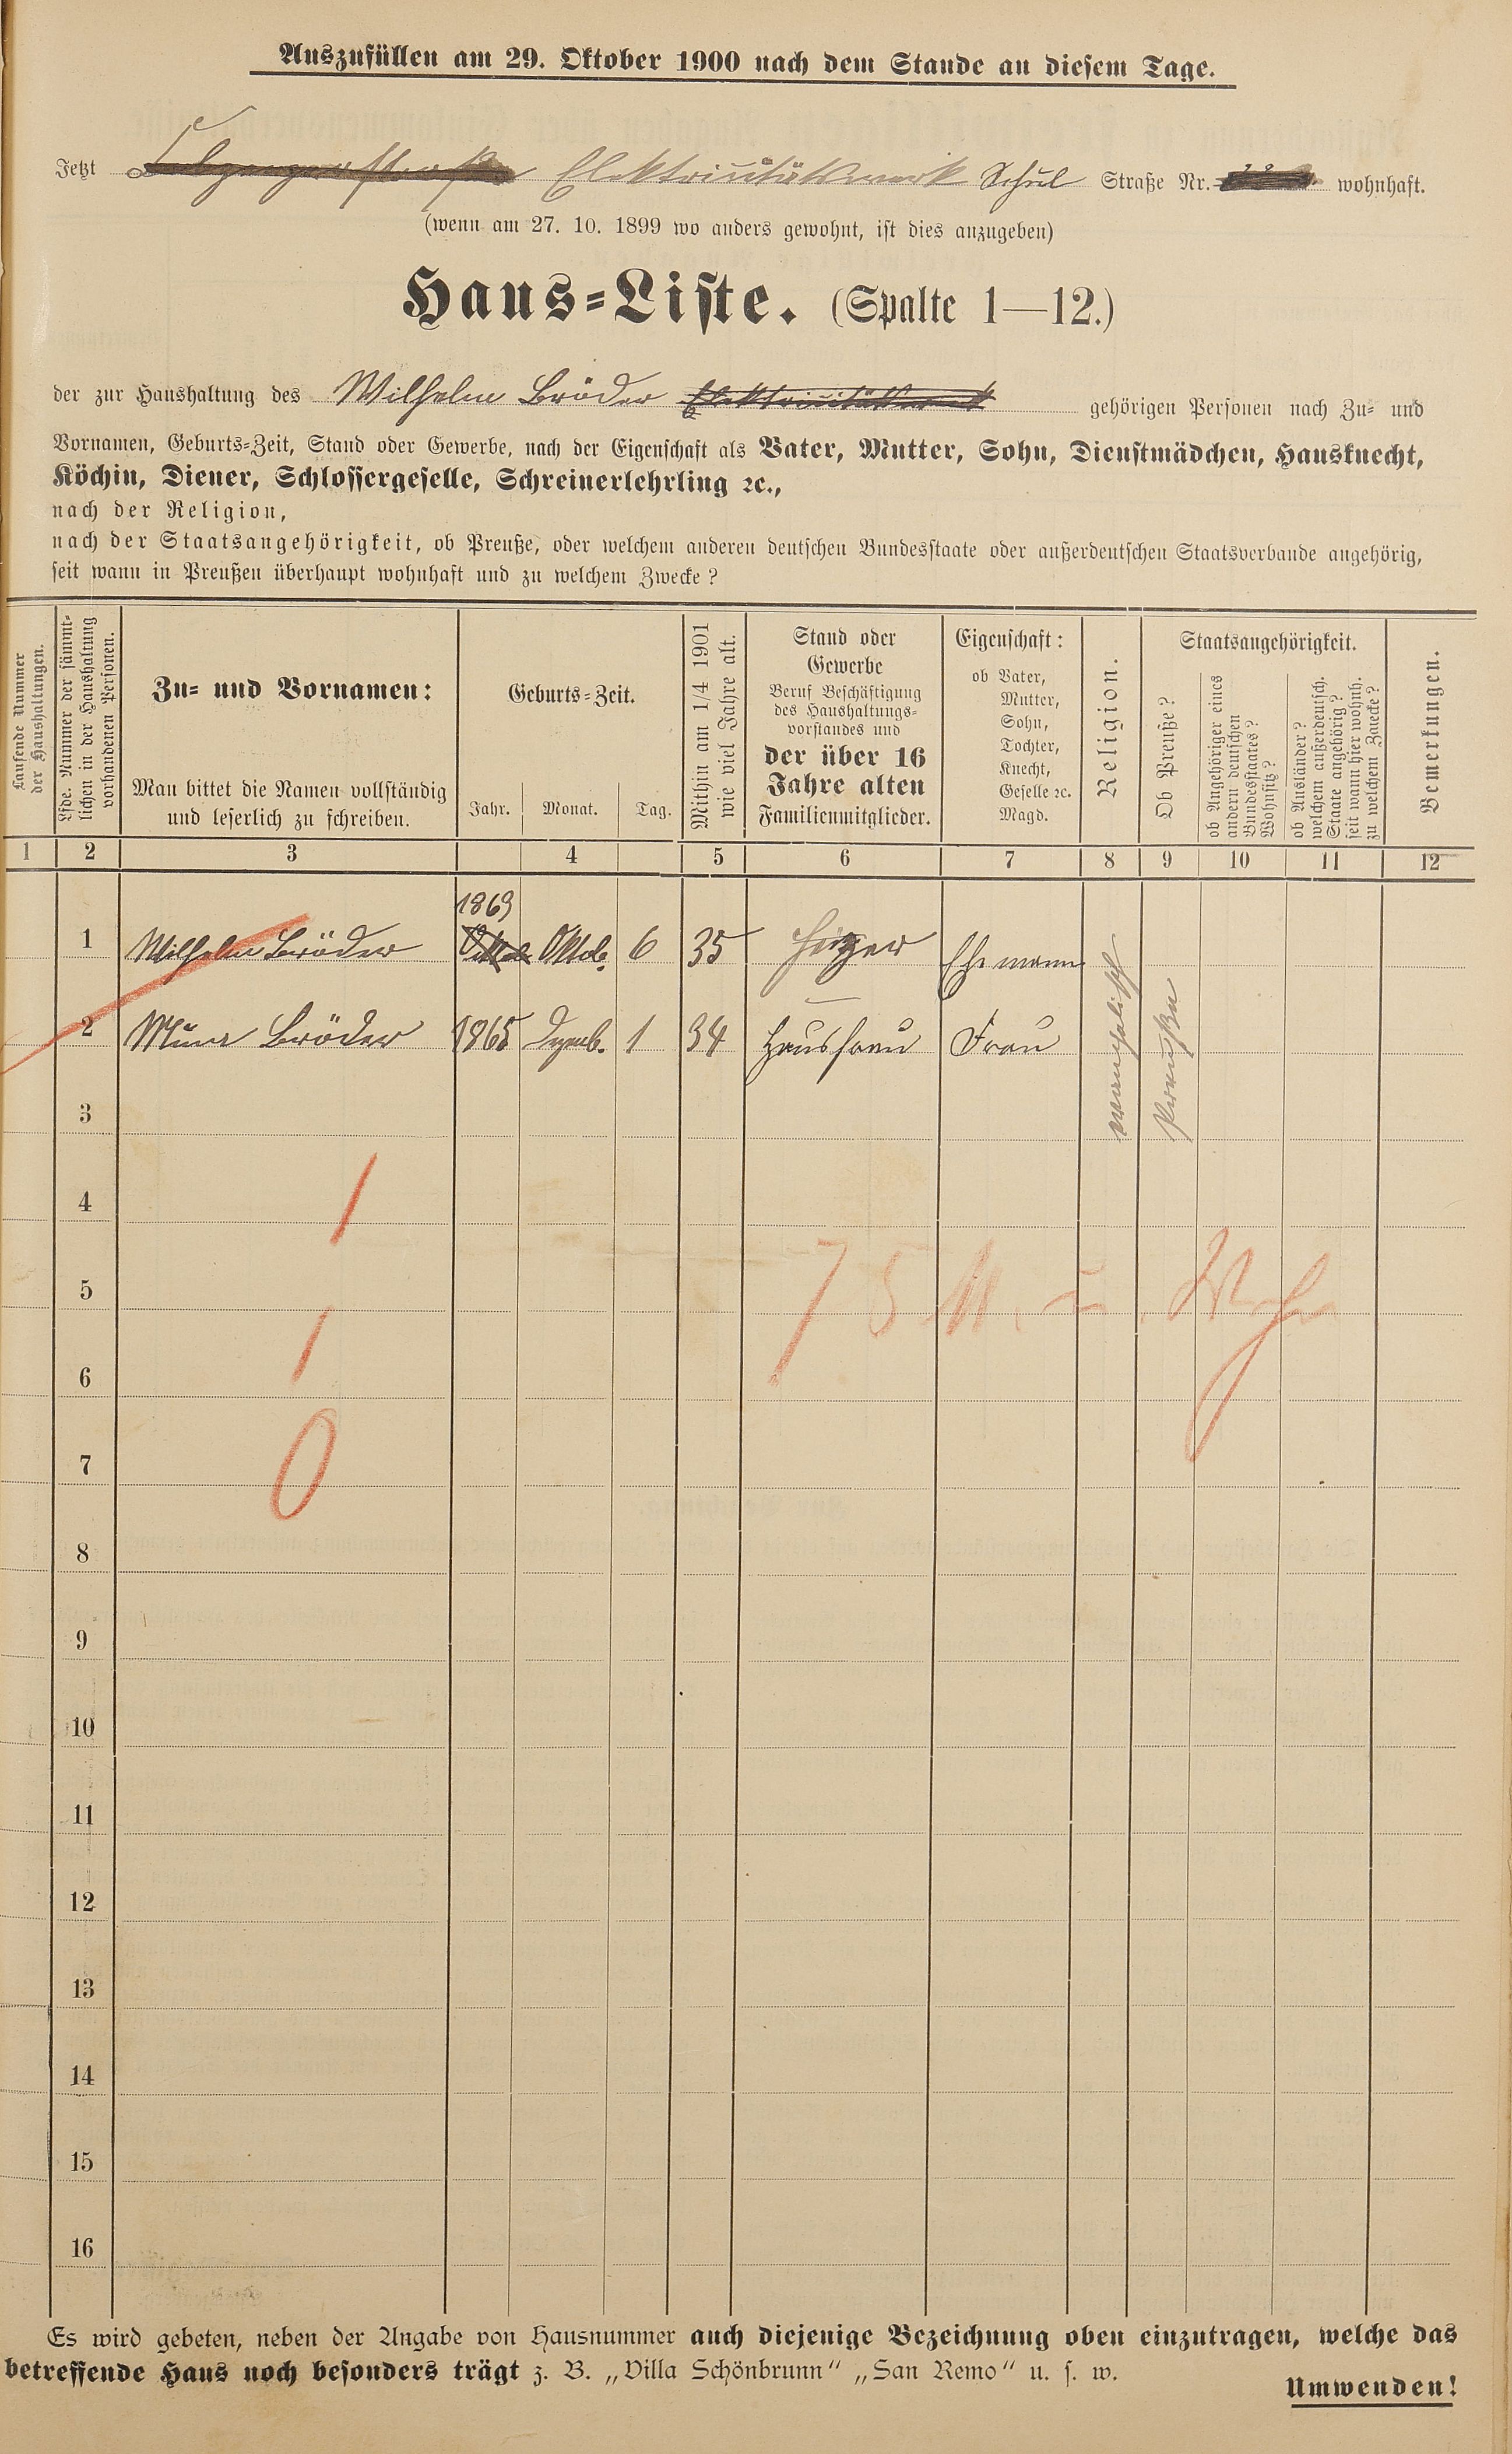 Auszufüllen am 29. Oktober 1900 nach dem Stande an diesem Tage.
Jetzt Elektricitätswerk Schul Straße Nr. wohnhaft.
(wenn am 27. 10. 1899 wo anders gewohnt, ist dies anzugeben)
Haus-Liste. (Spalte 1—12.)
der zur Haushaltung des Wilhelm Bröder Elektricitätswerk gehörigen Personen nach Zu- und
Vornamen, Geburts-Zeit, Stand oder Gewerbe, nach der Eigenschaft als Vater, Mutter, Sohn, Dienstmädchen, Hausknecht,
Köchin, Diener, Schlossergeselle, Schreinerlehrling ꝛc.,
nach der Religion,
nach der Staatsangehörigkeit, ob Preuße, oder welchem anderen deutschen Bundesstaate oder außerdeutschen Staatsverbande angehörig,
seit wann in Preußen überhaupt wohnhaft und zu welchem Zwecke?
Laufende Nummer
der Haushaltungen.
Lfde. Nummer der sämmt-
lichen in der Haushaltung
vorhandenen Personen.
Zu- und Vornamen:
Man bittet die Namen vollständig
und leserlich zu schreiben.
Geburts-Zeit.
Jahr. Monat. Tag.
Mithin am 1/4 1901
wie viel Jahre alt.
Stand oder
Gewerbe
Beruf Beschäftigung
des Haushaltungs-
vorstandes und
der über 16
Jahre alten
Familienmitglieder.
Eigenschaft:
ob Vater,
Mutter,
Sohn,
Tochter,
Knecht,
Geselle ꝛc.
Magd.
Religion.
Staatsangehörigkeit.
Ob Preuße?
ob Angehöriger eines
andern deutschen
Bundesstaates?
Wohnsitz?
ob Ausländer?
welchem außerdeutsch.
Staate angehörig?
seit wann hier wohnh.
zu welchem Zwecke?
Bemerkungen.
1 2 3 4 5 6 7 8 9 10 11 12
1869
1 Wilhelm Bröder Oktob. 6 35 Heizer Ehemann
2 Bröder 1865 Dezemb. 1 34 Hausfrau Frau
evangelisch
Preuße
3
4
1
5
75 M. u.
6
1
7
0
8
9
10
11
12
13
14
15
16
Es wird gebeten, neben der Angabe von Hausnummer auch diejenige Bezeichnung oben einzutragen, welche das
betreffende Haus noch besonders trägt z. B. „Villa Schönbrunn“ „San Remo“ u. s. w.
Umwenden!